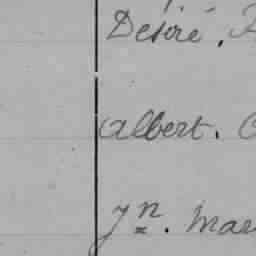 Désiré.
albert.
Jn. Mar